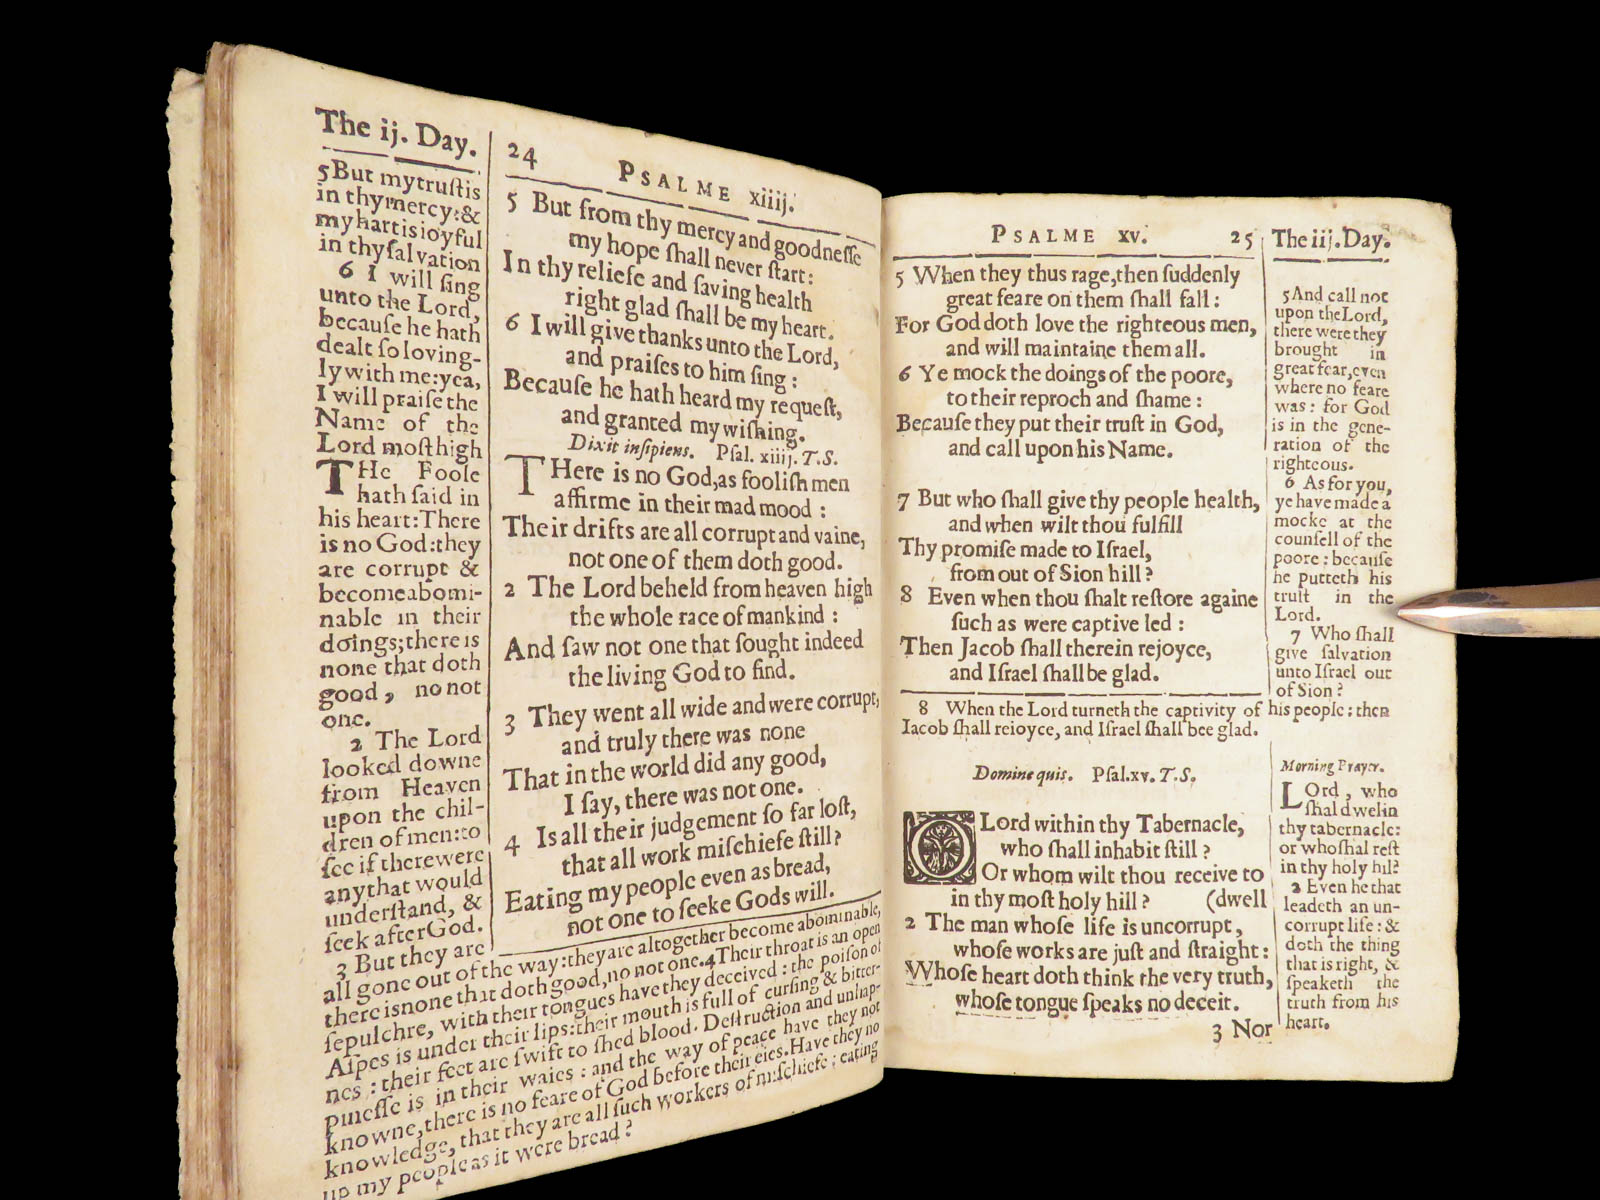 The ij. Day.
5 But my trust is
in thy mercy: &
my hart is ioyful
in thy salvation
6 I will sing
unto the Lord,
because he hath
dealt so loving-
ly with me: yea,
I will praise the
Name of the
Lord most high
THe Foole
hath said in
his heart: There
is no God: they
are corrupt &
become abomi-
nable in their
doings; there is
none that doth
good, no not
one.
2 The Lord
looked downe
from Heaven
upon the chil-
dren of men: to
see if there were
any that would
understand, &
seek after God.
3 But they are
all gone out of the way: they are altogether become abominable,
there is none that doth good, no not one. 4 Their throat is an open
sepulchre, with their tongues have they deceived: the poison of
Aspes is under their lips: their mouth is full of cursing & bitter-
nes: their feet are swift to shed blood. Destruction and unhap-
pinesse is in their waies: and the way of peace have they not
knowne, there is no feare of God before their eies. Have they no
knowledge, that they are all such workers of mischiefe: eating
up my people as it were bread?
24 PSALME xiiij.
5 But from thy mercy and goodnesse
my hope shall never start:
In thy reliefe and saving health
right glad shall be my heart.
6 I will give thanks unto the Lord,
and praises to him sing:
Because he hath heard my request,
and granted my wishing.
Dixit insipiens. Psal. xiiij. T.S.
THere is no God, as foolish men
affirme in their mad mood:
Their drifts are all corrupt and vaine,
not one of them doth good.
2 The Lord beheld from heaven high
the whole race of mankind:
And saw not one that sought indeed
the living God to find.
3 They went all wide and were corrupt,
and truly there was none
That in the world did any good,
I say, there was not one.
4 Is all their judgement so far lost,
that all work mischiefe still?
Eating my people even as bread,
not one to seeke Gods will.
PSALME xv. 25
5 When they thus rage, then suddenly
great feare on them shall fall:
For God doth love the righteous men,
and will maintaine them all.
6 Ye mock the doings of the poore,
to their reproch and shame:
Because they put their trust in God,
and call upon his Name.
7 But who shall give thy people health,
and when wilt thou fulfill
Thy promise made to Israel,
from out of Sion hill?
8 Even when thou shalt restore againe
such as were captive led:
Then Jacob shall therein rejoyce,
and Israel shall be glad.
8 When the Lord turneth the captivity of his people: then
Iacob shall reioyce, and Israel shall bee glad.
Domine quis. Psal. xv. T.S.
O Lord within thy Tabernacle,
who shall inhabit still?
Or whom wilt thou receive to
in thy most holy hill? (dwell
2 The man whose life is uncorrupt,
whose works are just and straight:
Whose heart doth think the very truth,
whose tongue speaks no deceit.
3 Nor
The iij. Day.
5 And call not
upon the Lord,
there were they
brought in
great fear, even
where no feare
was: for God
is in the gene-
ration of the
righteous.
6 As for you,
ye have made a
mocke at the
counsell of the
poore: because
he putteth his
trust in the
Lord.
7 Who shall
give salvation
unto Israel out
of Sion?
Morning Prayer.
LOrd, who
shal dwel in
thy tabernacle:
or who shal rest
in thy holy hil?
2 Even he that
leadeth an un-
corrupt life: &
doth the thing
that is right, &
speaketh the
truth from his
heart.